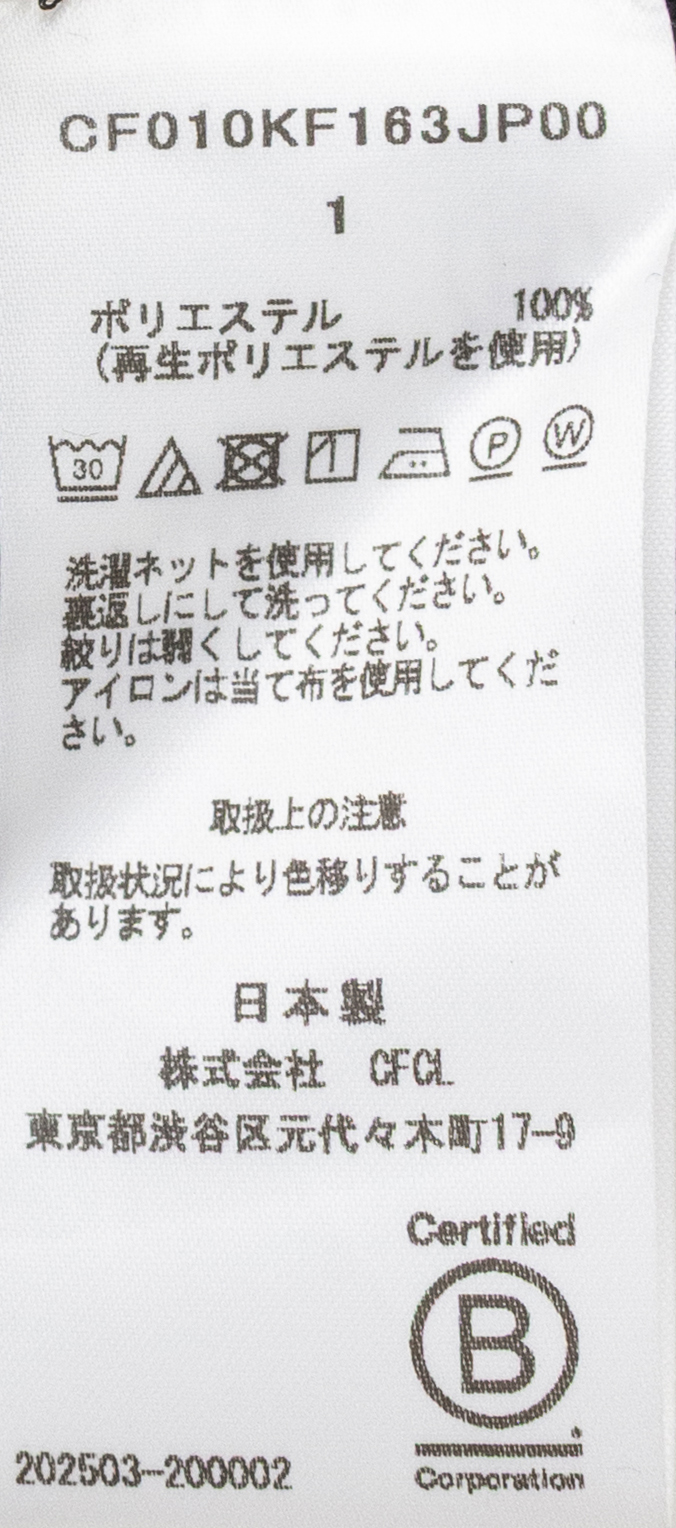 CF010KF163JP00
1
ポリエステル 100%
(再生ポリエステルを使用)
30 P W
洗濯ネットを使用してください。
裏返しにして洗ってください。
絞りは弱くしてください。
アイロンは当て布を使用してくだ
さい。
取扱上の注意
取扱状況により色移りすることが
あります。
日本製
株式会社 CFCL
東京都渋谷区元代々木町17-9
Certified
B
Corporation
202503-200002